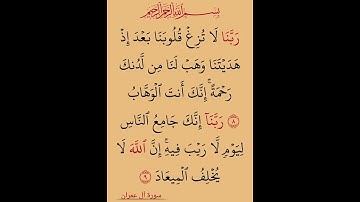 بِسْمِ اللَّهِ الرَّحْمَٰنِ الرَّحِيمِ
رَبَّنَا لَا تُزِغْ قُلُوبَنَا بَعْدَ إِذْ
هَدَيْتَنَا وَهَبْ لَنَا مِن لَّدُنكَ
رَحْمَةً ۚ إِنَّكَ أَنتَ الْوَهَّابُ
٨ رَبَّنَا إِنَّكَ جَامِعُ النَّاسِ
لِيَوْمٍ لَّا رَيْبَ فِيهِ ۚ إِنَّ اللَّهَ لَا
يُخْلِفُ الْمِيعَادَ ٩
سورة آل عمران